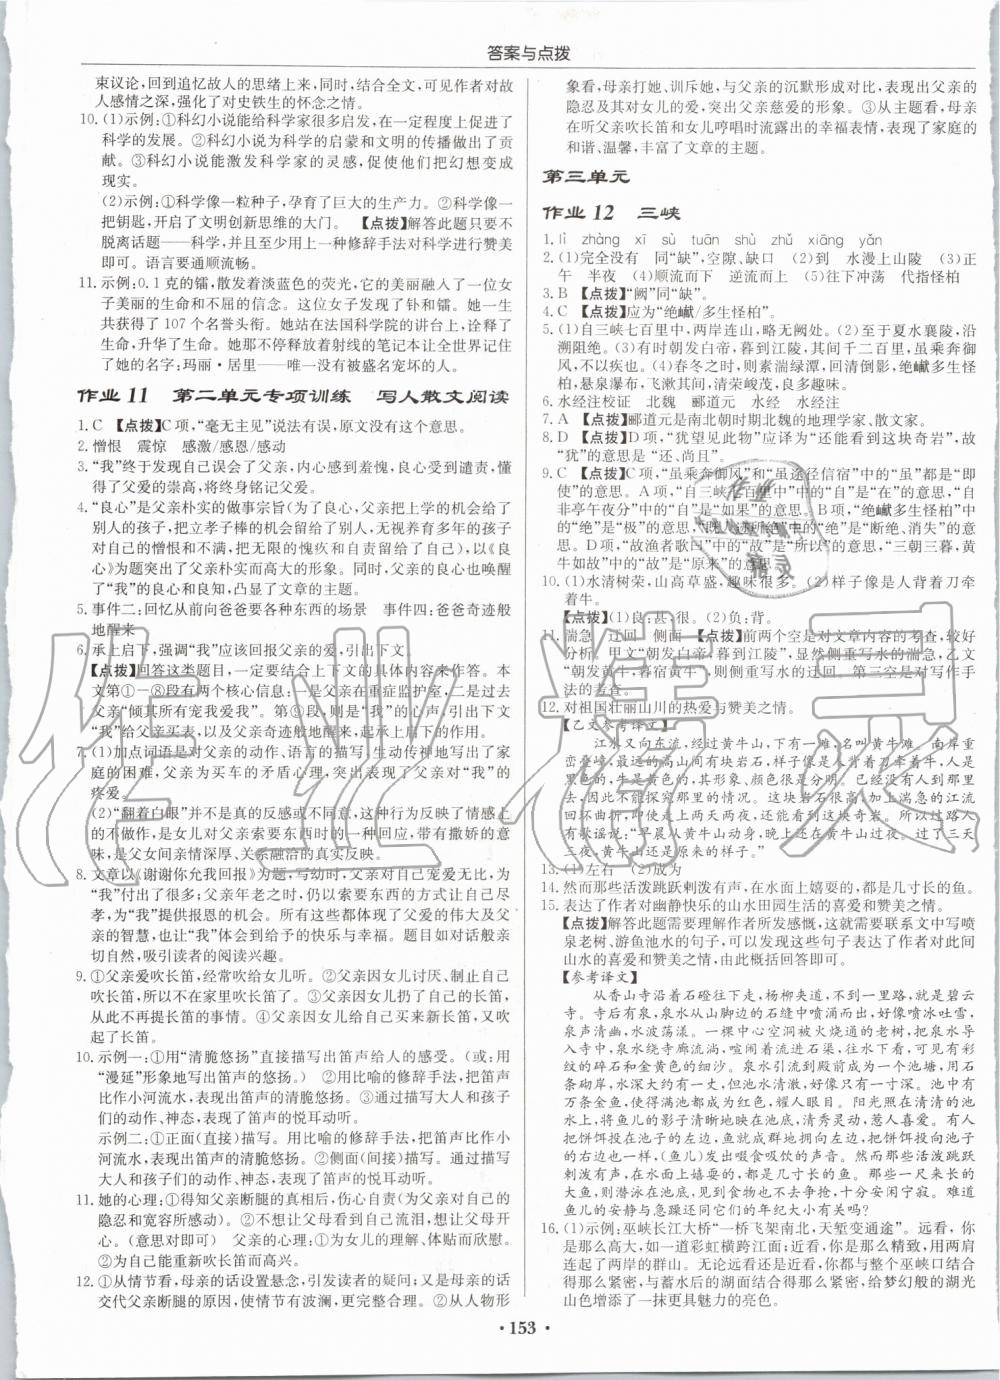 答案与点拨
束议论,回到追忆故人的思绪上来,同时,结合全文,可见作者对故
人感情之深,强化了对史铁生的怀念之情。
10. (1)示例:①科幻小说能给科学家很多启发,在一定程度上促进了
科学的发展。②科幻小说为科学的启蒙和文明的传播做出了贡
献。③科幻小说能激发科学家的灵感,促使他们把幻想变成
现实。
(2)示例:①科学像一粒种子,孕育了巨大的生产力。②科学像一
把钥匙,开启了文明创新思维的大门。 【点拨】解答此题只要不
脱离话题——科学,并且用上一种修辞手法对科学进行赞美
即可。语言要通顺流畅。
11. 示例:0.1 克的镭,散发着淡蓝色的荧光,它的美丽融入了一位
女子美丽的生命和不屈的信念。这位女子发现了钋和镭。她一生
共获得了 107 个名誉头衔。她站在法国科学院的讲台上,诠释了
生命,升华了生命。她那不停释放着射线的笔记本让全世界记住
了她的名字:玛丽·居里——唯一没有被盛名宠坏的人。
作业 11 第二单元专项训练 写人散文阅读
1. C 【点拨】C 项,“毫无主见”说法有误,原文没有这个意思。
2. 憎恨 震惊 感激/感恩/感动
3. “我”终于发现自己误会了父亲,内心感到羞愧,良心受到谴责,懂
得了父爱的崇高,将终身铭记父爱。
4. “良心”是父亲朴实的做事宗旨(为了良心,父亲把上学的机会给了
别人的孩子,把立孝子棒的机会留给了别人,无视养育多年的孩子
对自己的憎恨和不满,把无限的愧疚和自责留给了自己),以《良
心》为题突出了父亲朴实而高大的形象。同时,父亲的良心也唤醒
了“我”的良心和良知,凸显了文章的主题。
5. 事件二:回忆从前向爸爸要各种东西的场景 事件四:爸爸奇迹般
地醒来
6. 承上启下,强调“我”应该回报父亲的爱,引出下文。
【点拨】回答这类题目,一定要结合上下文的具体内容来作答。本
文第①—⑧段有两个核心信息:一是父亲在重症监护室,二是过去
父亲“倾其所有宠我爱我”。第⑨段,则是“我”的心声,引出下文
“我”给父亲买表,以及父亲奇迹般地好起来,起承上启下的作用。
7. (1)加点词语是对父亲的动作、语言的描写,生动传神地写出了家
庭的困难,父亲为买车的矛盾心理,突出表现了父亲对“我”的
疼爱。
(2)“翻着白眼”并不是真的反感或不同意,这种行为反映了情感上
的不做作,是女儿对父亲索要东西时的一种回应,带有撒娇的意
味,是父女间亲情深厚、关系融洽的真实反映。
8. 文章以《谢谢你允我回报》为题,写幼时,父亲对自己宠爱无比,为
“我”付出了很多;父亲年老之时,仍以索要东西的方式让自己尽
孝,为“我”提供报恩的机会。如此,全面地体现了父爱的伟大及父
亲的智慧,也让“我”体会到给予的快乐与幸福。题目如对话般亲
切自然,吸引读者的阅读兴趣。
9. ①父亲爱吹长笛,经常吹给女儿听。②父亲因女儿讨厌、制止自己
吹长笛,所以不再吹长笛。③父亲因女儿扔了自己的长笛,从
此不再提长笛的事情。④父亲因女儿给自己买来新长笛,又吹
起了长笛。
10. 示例一:①用“清脆悠扬”直接描写出笛声给人的感受。(或:用
“漫延”形象地写出笛声的悠扬。) ②用比喻的修辞手法,把笛声
比作小河流水,表现出笛声的清脆悠扬。③通过描写大人和孩子
们的动作、神态,表现了笛声的悦耳动听。
示例二:①正面(直接)描写。用比喻的修辞手法,把笛声比作小
河流水,表现出笛声的清脆悠扬。②侧面(间接)描写。通过描写
大人和孩子们的动作、神态,表现了笛声的悦耳动听。
11. 她的心理:①得知父亲断腿的真相后,伤心自责(为父亲对自己的
隐忍和宽容所感动)。②不想让父亲看到自己流泪,想让父亲开
心。(意思对即可) 父亲的心理:①为女儿的理解、体贴而欣慰。
②为自己能重新吹长笛而高兴。
12. ①从情节看,母亲的话设置悬念,引发读者的疑问;又是母亲的话
交代父亲断腿的原因,使情节有波澜,更完整。②从人物形
象看,母亲打她、训斥她,与父亲的沉默形成对比,表现出父亲的
隐忍及其对女儿的爱,突出父亲慈爱的形象。③从主题看,母亲
在听父亲吹长笛和女儿哼唱时流露出的幸福表情,表现了家庭的
和谐、温馨,丰富了文章的主题。
第三单元
作业 12 三峡
1. lì zhàng xī sù tuān shù zhǔ xiāng yǎn
2. (1)完全没有 同“缺”,空隙、缺口 (2)到 水漫上山陵 (3)正
午 半夜 (4)顺流而下 逆流而上 (5)往下冲荡 代指怪柏
3. B 【点拨】“阙”同“缺”。
4. C 【点拨】应为“绝巘/多生怪柏”。
5. (1)自三峡七百里中,两岸连山,略无阙处。(2)至于夏水襄陵,沿
溯阻绝。(3)有时朝发白帝,暮到江陵,其间千二百里,虽乘奔御
风,不以疾也。(4)春冬之时,则素湍绿潭,回清倒影,绝巘多生怪
柏,悬泉瀑布,飞漱其间,清荣峻茂,良多趣味。
6. 水经注校证 北魏 郦道元 水经 水经注
7. A 【点拨】郦道元是南北朝时期北魏的地理学家、散文家。
8. D 【点拨】D 项,“犹望见此物”应译为“还能看到这块奇岩”,故
“犹”的意思是“还、尚且”。
9. C 【点拨】C项,“虽乘奔御风”和“虽途径信宿”中的“虽”都是“即
使”的意思。A 项,“自三峡七百里中”中的“自”是“在”的意思,“自
非亭午夜分”中的“自”是“如果”的意思。B项,“绝巘多生怪柏”中
的“绝”是“极”的意思,“既人迹所绝”中的“绝”是“断绝、消失”的意
思。D项,“故渔者歌曰”中的“故”是“所以”的意思,“三朝三暮,黄
牛如故”中的“故”是“原来”的意思。
10. (1)水清树荣,山高草盛,趣味很多。(2)样子像是人背着刀牵
着牛。
【点拨】(1)良:甚;很。(2)负:背。
11. 湍急 迂回 侧面 【点拨】前两个空是对文章内容的考查,较好
分析。甲文“朝发白帝,暮到江陵”,显然侧重写水的湍急,乙文
“朝发黄牛,暮宿黄牛”,侧重写水的迂回。第三空是对写作手
法的考查。
12. 对祖国壮丽山川的热爱与赞美之情。
【乙文参考译文】
江水又向东流,经过黄牛山,下有一滩,名叫黄牛滩。南岸重
峦叠嶂,在最远的高山间有块岩石,样子像是人背着刀牵着牛,人是
黑色的,牛是黄色的,其形象、颜色很是分明。已经没有人到过那里
去,因此不能探究那里的情况。这块岩石很高,加上湍急的江流
回环曲折,即使走上两天两夜,还能看到这块奇岩。所以过路人
有歌谣说:“早晨从黄牛山动身,晚上还在黄牛山住宿,过了三天
三夜,黄牛山还是原来的样子。”
13. (1)左右 (2)成为
14. 然而那些活泼跳跃刺泼有声,在水面上嬉耍的,都是几寸长的鱼。
15. 表达了作者对幽静快乐的山水田园生活的喜爱和赞美之情。
【点拨】解答此题需要理解作者所发感慨,这就需要联系文中写喷
泉老树、游鱼池水的句子,可以发现这些句子表达了作者对此间
山水的喜爱和赞美之情,由此概括回答即可。
【参考译文】
从香山寺沿着石磴往下走,杨柳夹道,不到一里路,就是碧云
寺。寺后有泉,泉水从山脚边的石缝中喷出,喷时的样子像吐雪,
泉声清亮,水波荡漾。一棵中心空洞被火燎过的老树,把泉水引
向寺中,泉水绕寺廊流淌,喧闹着汇进石渠。往水下看,可看到彩
纹的碎石和金黄色的细沙。泉水引到殿前就成为一个水池,用石
条砌岸,水深大约一丈,池中多红鱼,水草不生。池水中有
万条金鱼,鱼儿成群都成为红色,耀人眼目。阳光照在清清的池
水上,把那些影子清晰地映在池底,清秀灵动,惹人喜爱。有人
把饼饵投在池子的左边,鱼就成群地拥向左边,投在池子的右边,
也会这样,(鱼儿)发出啜食吸饮的声音。然而那些活泼跳跃刺
泼有声,在水面上嬉耍的,都是几寸长的鱼。那些一尺来长的
大鱼,则潜泳在池底,即使看见食也不争,十分安闲宁寂。难道
鱼儿的安静与急躁还同它们的年纪大小有关吗?
16. (1)示例:巫峡长江大桥“一桥飞架南北,天堑变通途”。远看,你
是那么高大,如一道彩虹横跨江面;近看,你是那么精致,用两肩
连起了两岸的山峦。无论远看还是近看,你都与整个巫峡口结合
得那么紧密,与周围的环境结合得那么紧密,给梦幻般的湖光
山色增添了一抹更具魅力的亮色。
·153·
作业精灵